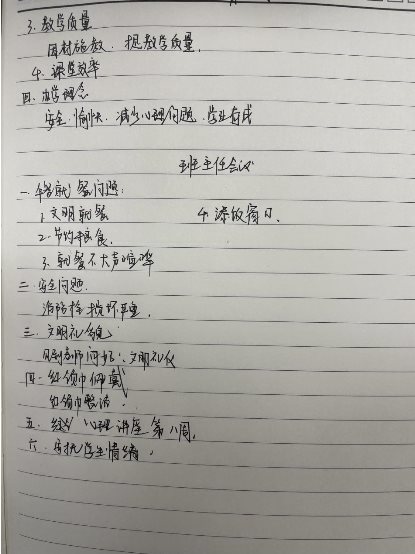 3. 教学质量
因材施教. 提教学质量.
4. 课堂效率
四. 办学理念
安全. 愉快. 减少心理问题. 学业有成
班主任会议
一. 就餐问题:
1. 文明就餐 4. 添饭窗口.
2. 节约粮食.
3. 就餐不大声喧哗
二. 安全问题.
消防栓 损坏严重.
三. 文明礼仪
见到老师问好. 文明礼仪
四. 红领巾佩戴
红领巾整洁.
五. 心理讲座 第八周.
六. 学生情绪.